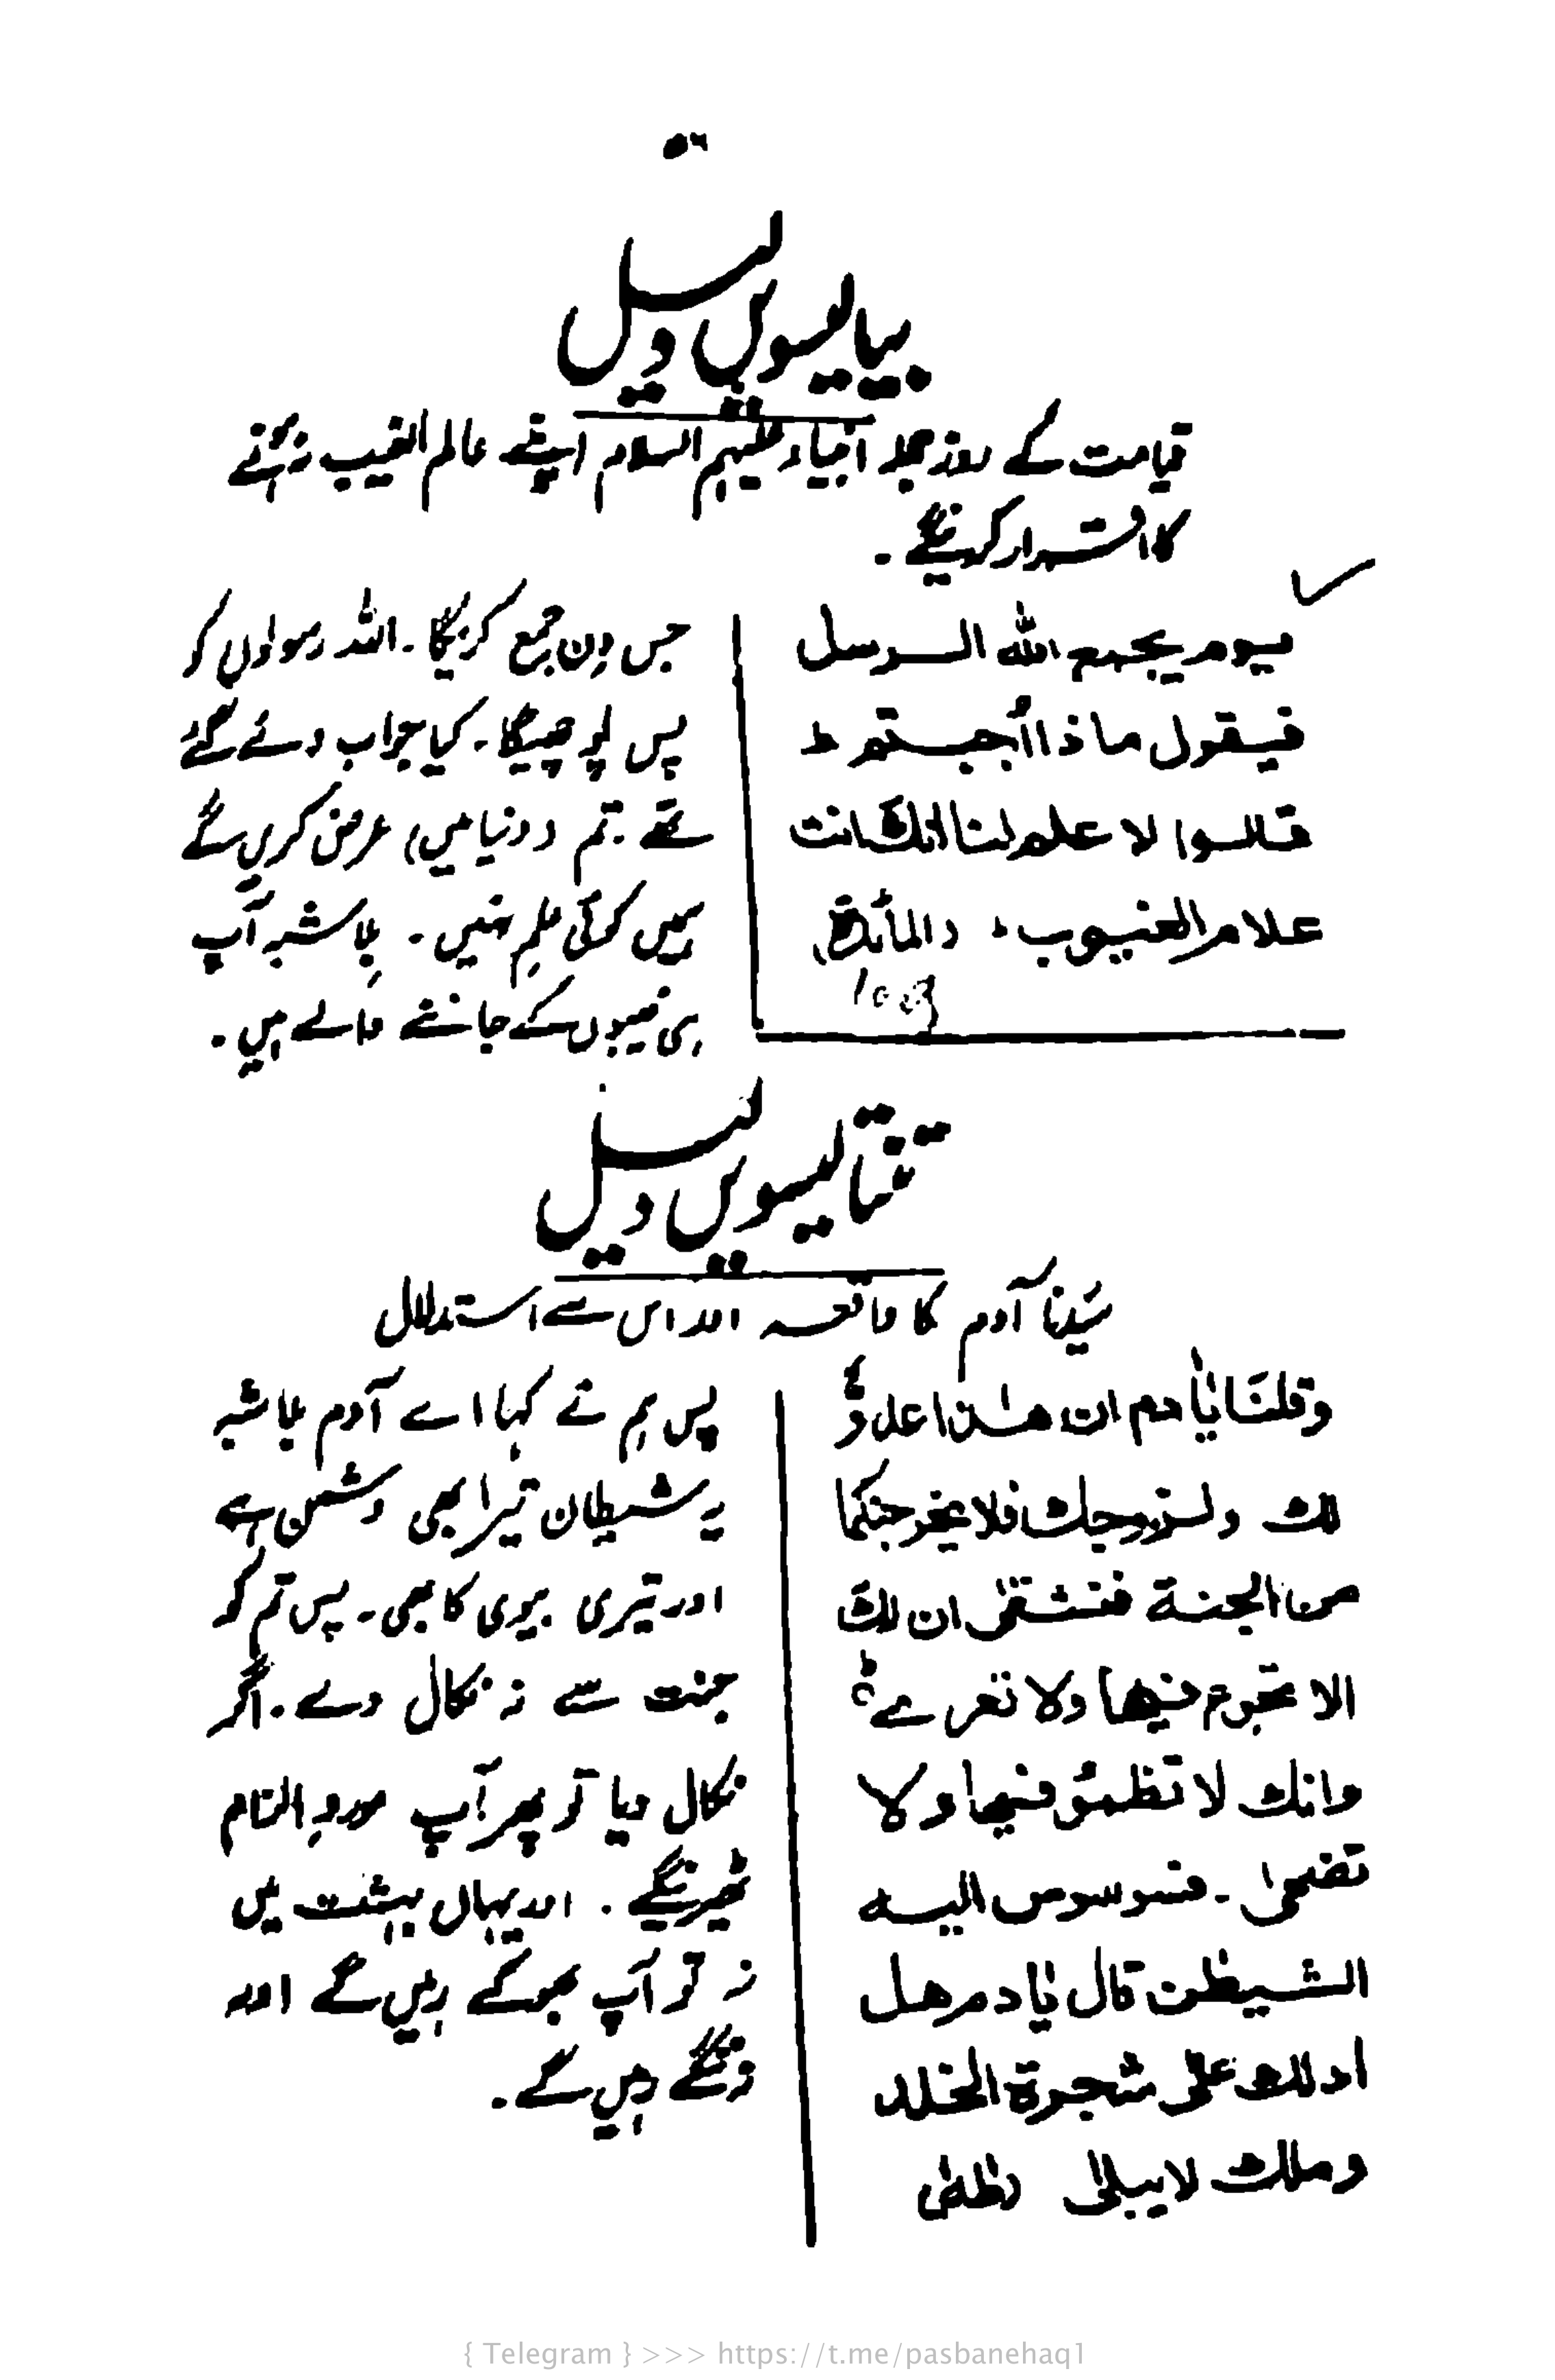 ۴۰
بیالیسویں دلیل
قیامت کے روز جملہ انبیاء علیہم السلام اپنے عالم الغیب نہ ہونے
کا اقرار کرینگے۔
یوم یجمع اللہ الرسل
فیقول ماذا اُجبتم ط
قالوا لا علم لنا انک انت
علام الغیوب ۔ (المائدۃ)
109
جس دن جمع کریگا ۔ اللہ رسولوں کو
پس پوچھیگا ۔ کیا جواب دئے گئے
تھے ۔ تم (دنیا میں) عرض کریں گے
ہمیں کوئی علم نہیں ۔ بلاشبہ آپ
ہی غیبوں کے جاننے والے ہیں ۔
تنتالیسویں دلیل
سیّدنا آدم کا واقعہ اور اس سے استدلال
وقلنَا یٰاٰدم ان ھٰذا عدوٌّ
لک ولزوجک فلا یخرجنکما
من الجنۃ فتشقیٰ ان لک
الا تجوع فیھا ولا تعرےٰ
وانک لا تظمئوُ فیھا ولا
تضحیٰ ۔ فوسوس الیہ
الشیطٰن قال یٰادم ھل
ادلک علیٰ شجرۃ الخلد
وملک لا یبلیٰ (طٰہٰ)
پس ہم نے کہا اے آدم بلاشبہ
یہ شیطان تیرا بھی دشمن ہے
اور تیری بیوی کا بھی ۔ پس تم کو
جنت سے نہ نکال دے ۔ اگر
نکال دیا تو پھر آپ موردِ الزام
ٹھیرینگے ۔ اور یہاں بہشت میں
نہ تو آپ بھوکے رہیں گے اور
نہ ننگے رہیں گے ۔
{ Telegram } >>> https://t.me/pasbanehaq1